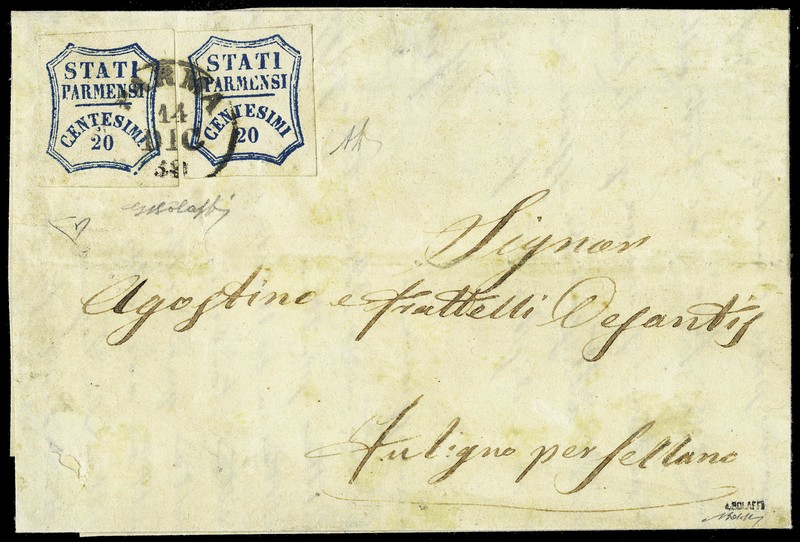 STATI
PARMENSI
CENTESIMI
20
STATI
PARMENSI
CENTESIMI
20
PARMA
14
DIC
59
Signor
Agostino e frattelli Desantis
Fuligno per Sellano
A.BOLAFFI